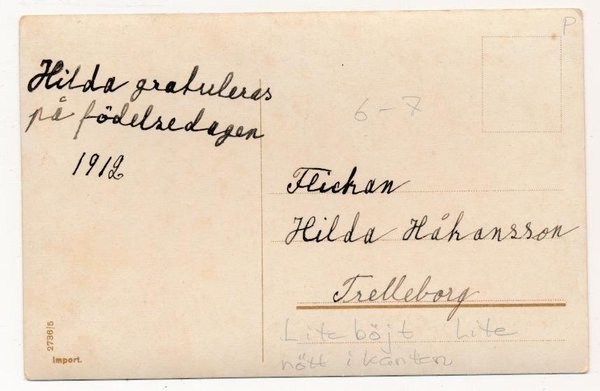 Hilda gratuleras
på födelsedagen
1912
P
6-7
Flickan
Hilda Håkansson
Trelleborg
Lite böjt Lite
nött i kanten
2736/5
Import.